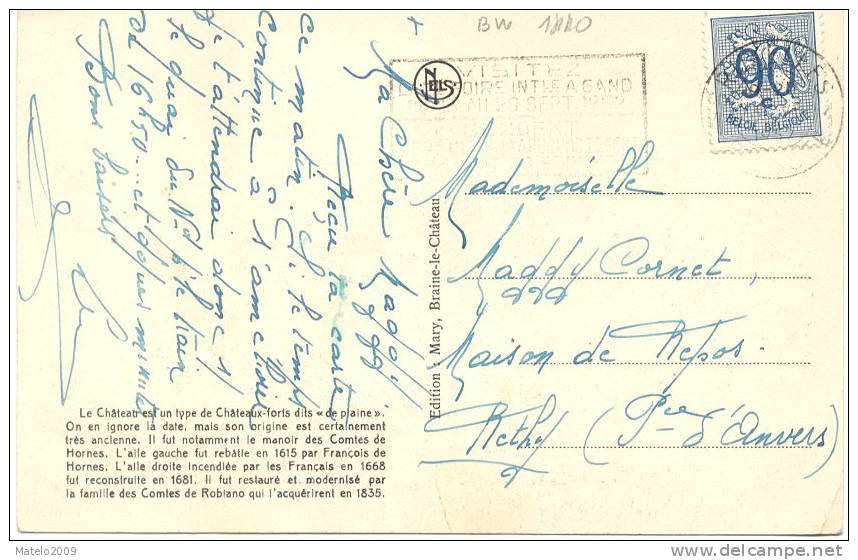 BW 1440
VISITEZ
FOIRE INTLE A GAND
SEPT.
NELS
90
c
BELGIE-BELGIQUE
Ma Chère Maddy
Reçu ta carte
ce matin. Si le temps
continue à s'améliorer
je t'attendrai donc s/
le quai du Nd p/ le train
de 16h50... et qques minutes
Bons baisers
Edition : Mary, Braine-le-Château
Mademoiselle
Maddy Cornet,
Maison de Repos.
Rethy (Pce d'Anvers)
Le Château est un type de Châteaux-forts dits « de plaine ».
On en ignore la date, mais son origine est certainement
très ancienne. Il fut notamment le manoir des Comtes de
Hornes. L'aile gauche fut rebâtie en 1615 par François de
Hornes. L'aile droite incendiée par les Français en 1668
fut reconstruite en 1681. Il fut restauré et modernisé par
la famille des Comtes de Robiano qui l'acquérirent en 1835.
Matelo2009
delcampe.net